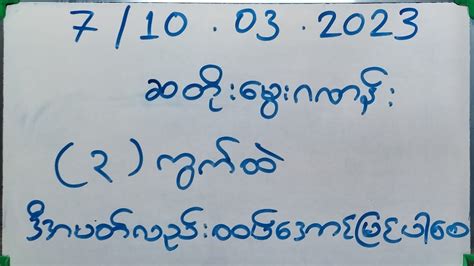 7/10.03.2023
ဆတိုးမွေးဂဏန်း
(၃) ကွက်ထဲ
ဒီအပတ်လည်းထပ်အောင်မြင်ပါစေ